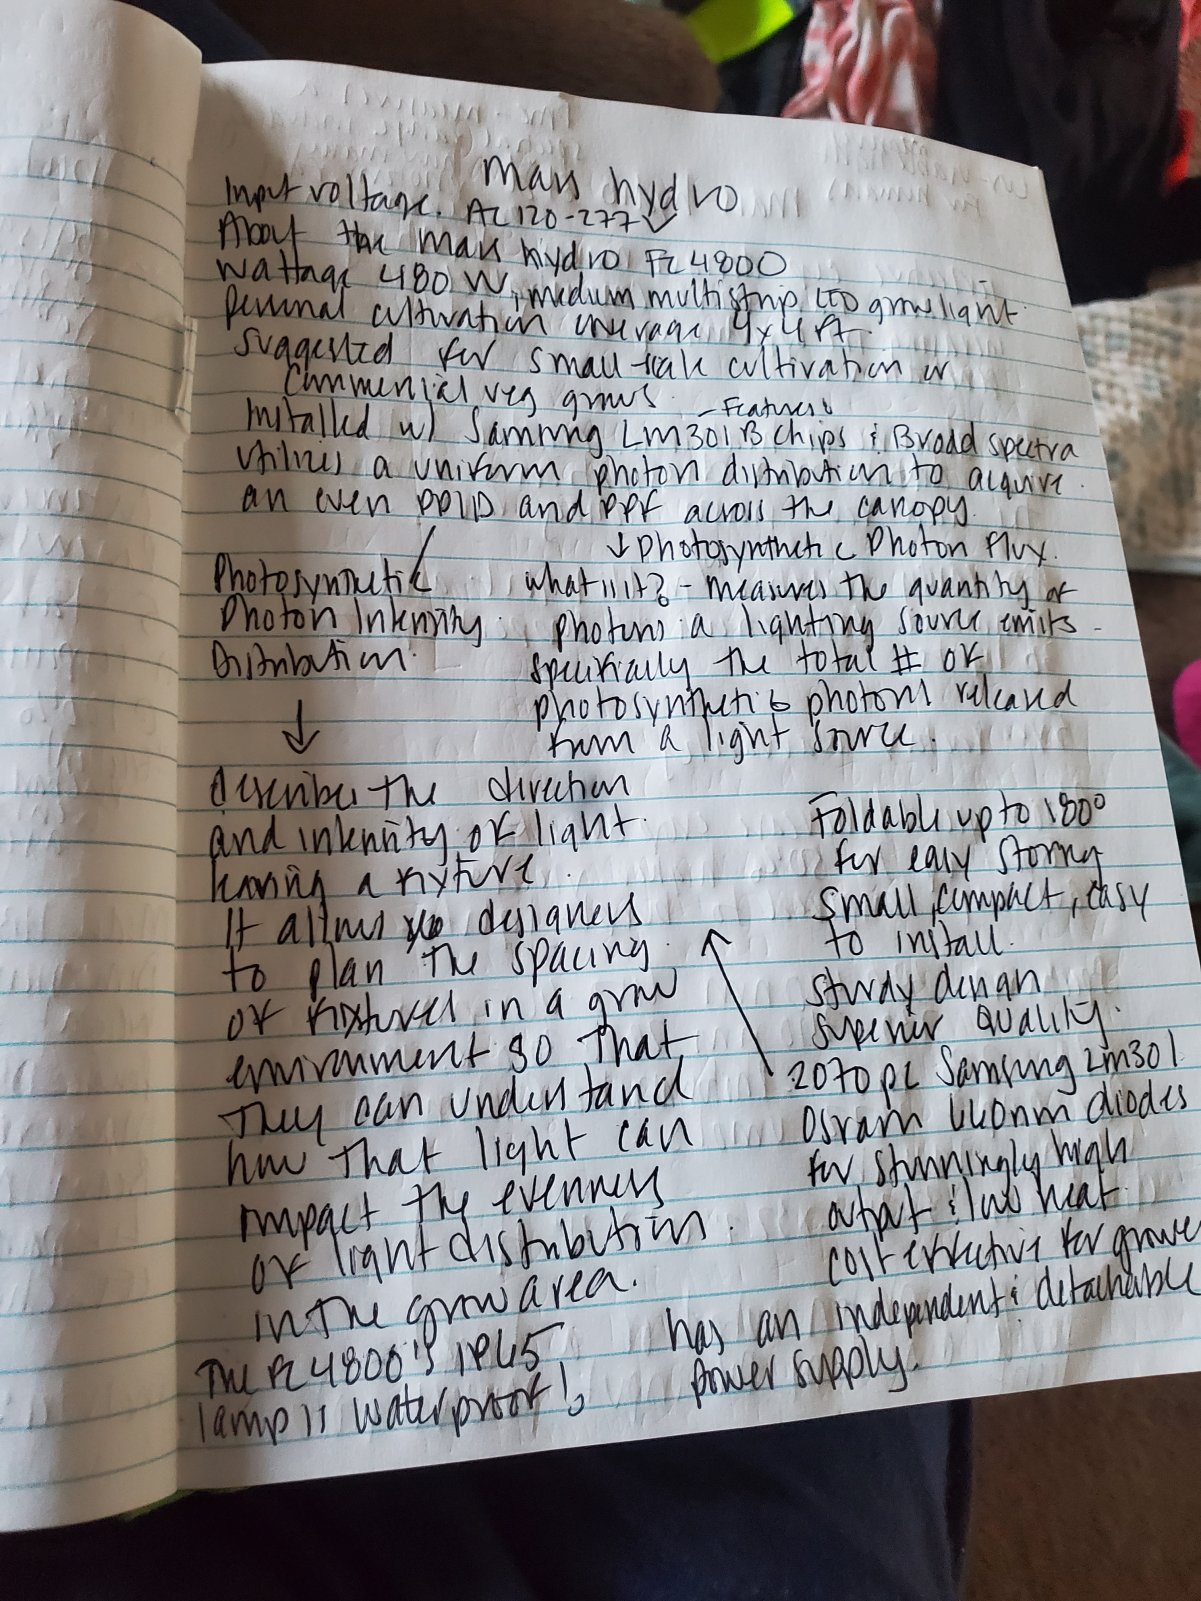 Mars hydro
Input voltage. AC 120-277V
About the Mars hydro FC4800
Wattage 480 W, medium multistrip LED grow light.
Personal cultivation coverage 4x4 ft.
Suggested for small-scale cultivation or
commercial veg grows.
- Features:
Installed w/ Samsung LM301B chips & Broad spectra
utilizes a uniform photon distribution to acquire
an even PPID and PPF across the canopy.
↓ Photosynthetic Photon Flux.
Photosynthetic
Photon Intensity
Distribution.
what is it? - measures the quantity of
photons a lighting source emits -
specifically the total # of
photosynthetic photons released
from a light source.
↓
describes the direction
and intensity of light
leaving a fixture.
It allows designers
to plan the spacing
of fixtures in a grow
environment so that
they can understand
how that light can
impact the evenness
of light distribution
in the grow area.
The FC4800's IP65
lamp is waterproof!
Foldable up to 180°
for easy storing
small, compact, easy
to install.
sturdy design
superior quality.
2070 pc Samsung LM301
Osram 660nm diodes
for stunningly high
output & low heat
cost effective for growe
has an independent & detachable
power supply.